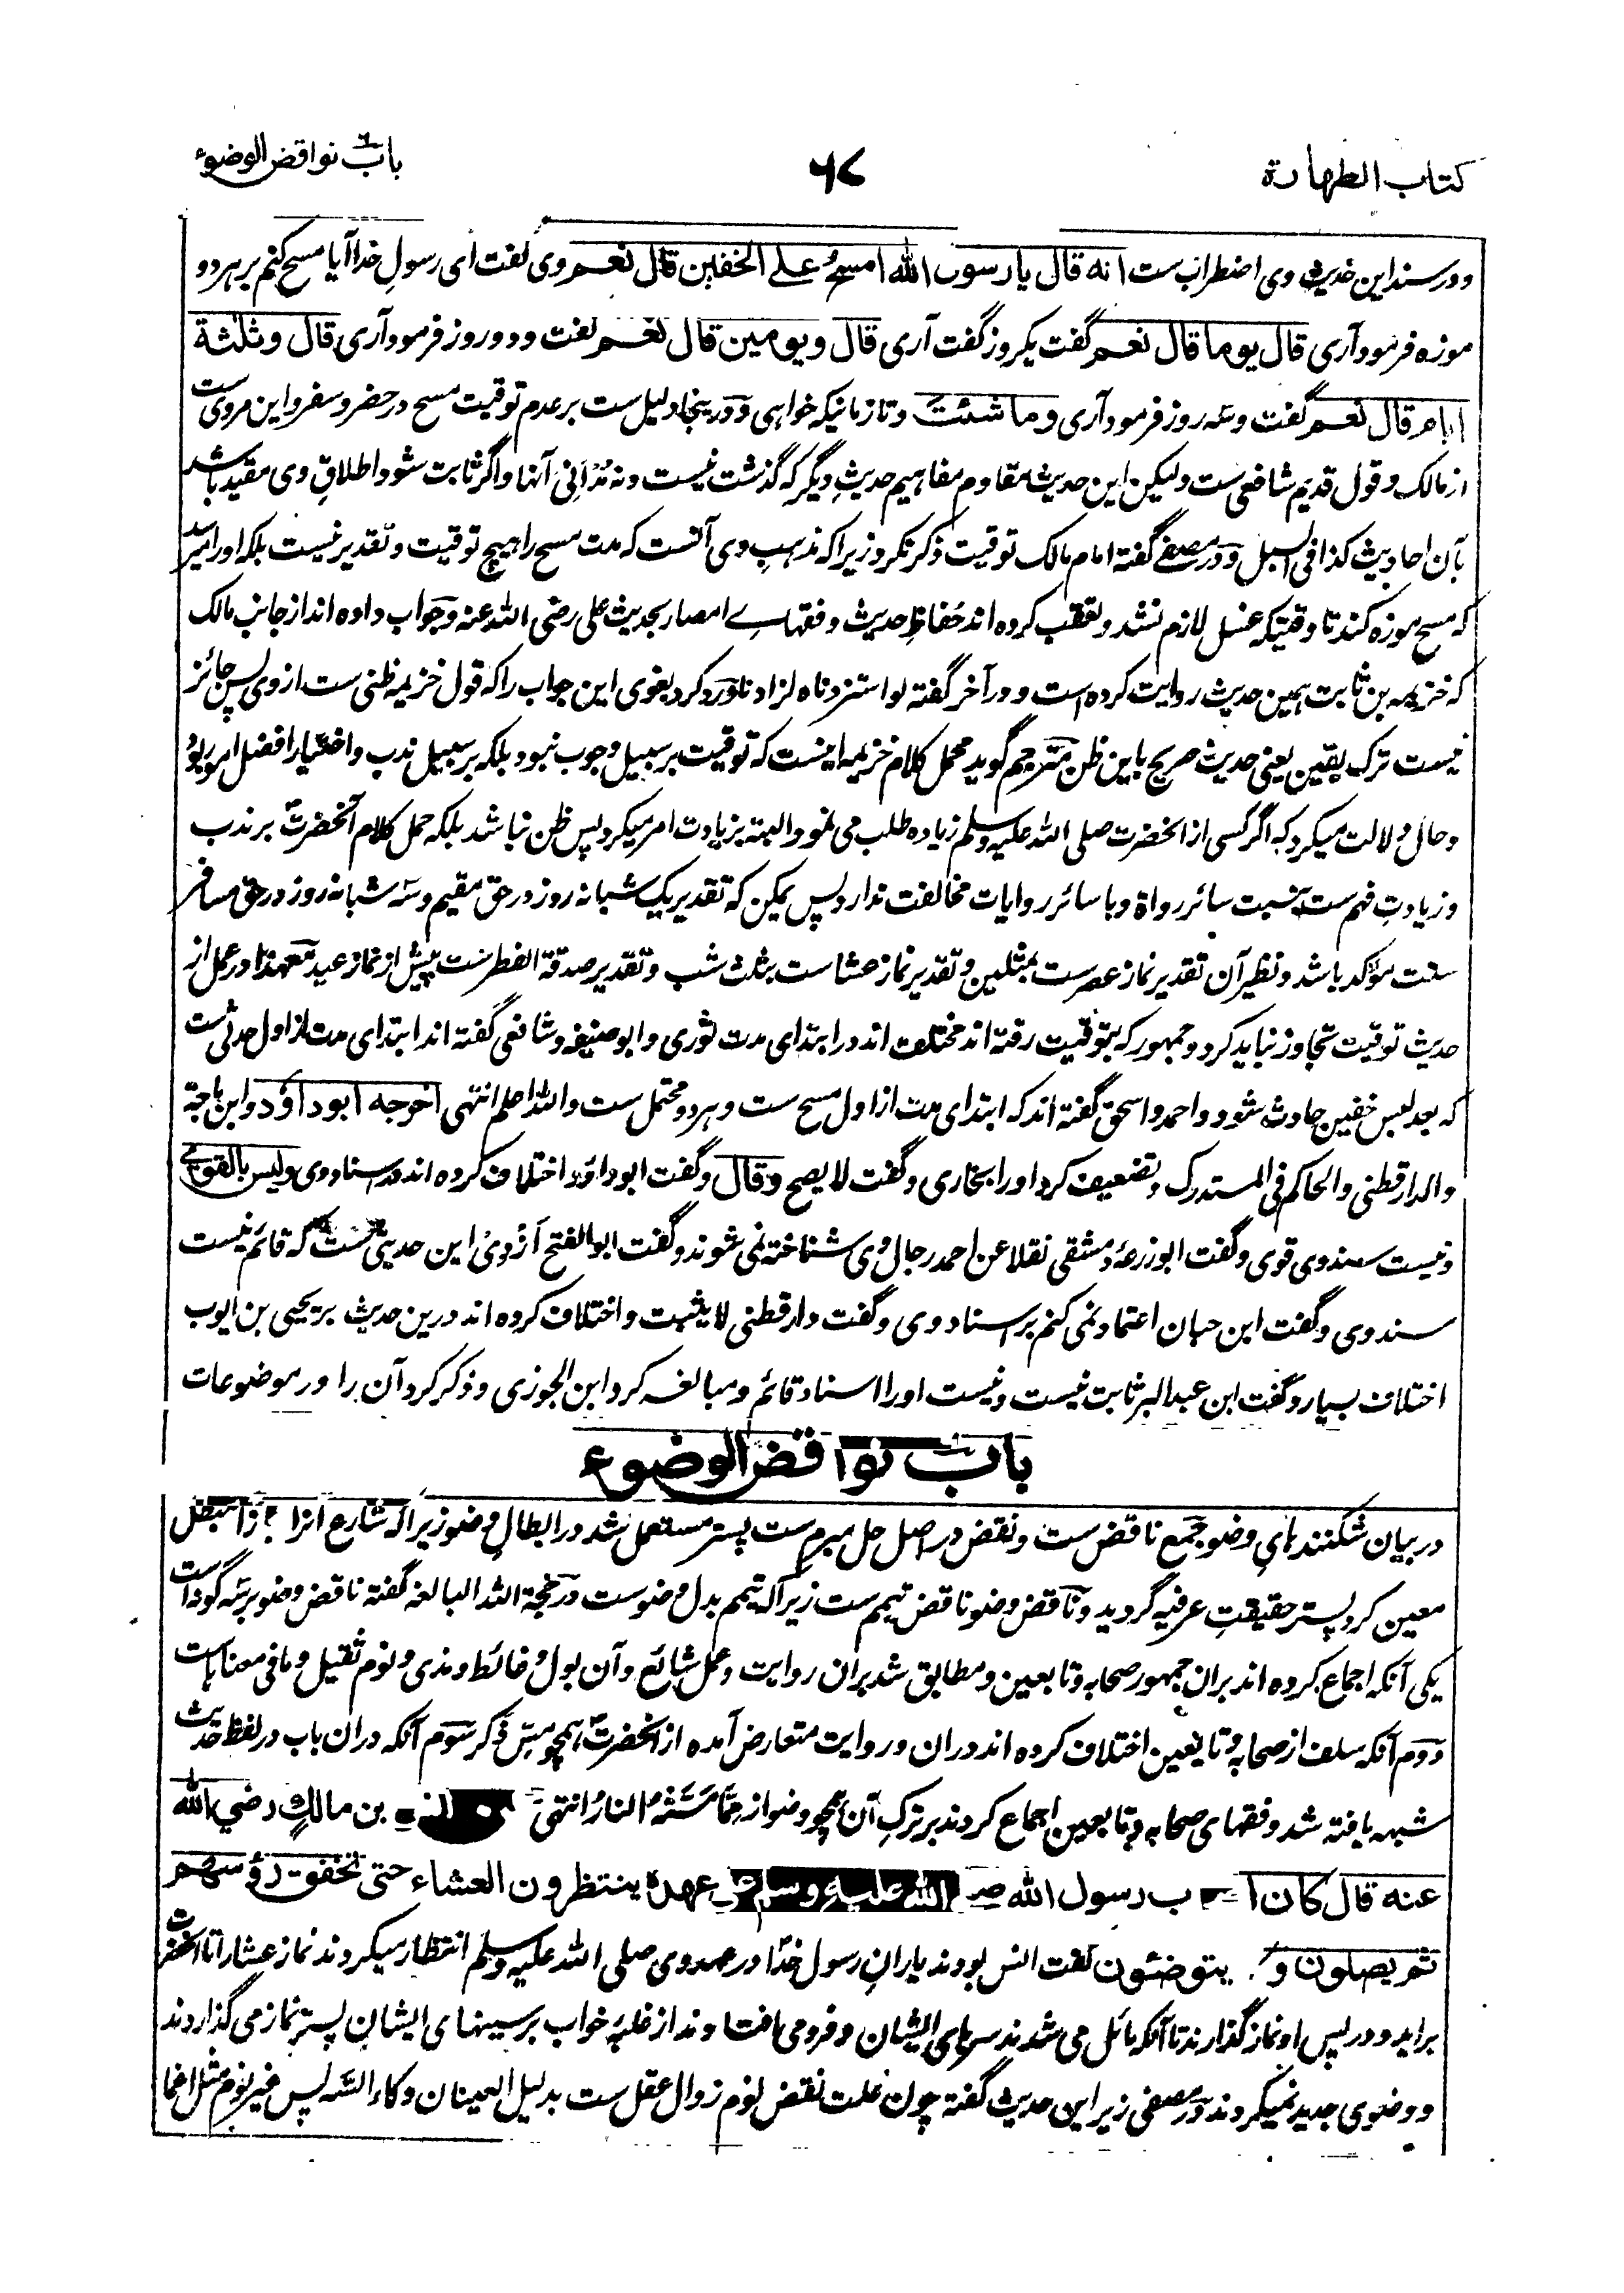 کتاب الطهارة
۶۷
باب نواقض الوضوء
و در سند این حدیث وی اضطراب ست انه قال یا رسول الله امسح علی الخفین قال نعم وی گفت ای رسول خدا آیا مسح کنم بر هر دو
موزه فرمود آری قال یوما قال نعم گفت یکروز گفت آری قال و یومین قال نعم گفت و دو روز فرمود آری قال و ثلثة
ایام قال نعم گفت و سه روز فرمود آری وما شئت و تا زمانیکه خواهی و درینجا دلیل ست بر عدم توقیت مسح در حضر و سفر و این مروی ست
از مالک و قول قدیم شافعی ست ولیکن این حدیث مقاوم مفاهیم حدیث دیگر که گذشت نیست و نه مدانی آنها و اگر ثابت شود اطلاق وی مقید باشد
بآن احادیث کذا فی السبل و در مصفے گفته امام مالک توقیت ذکر نکرد زیرا که مذهب وی آنست که مدت مسح را هیچ توقیت و تقدیر نیست بلکه او را میرسد
که مسح موزه کند تا وقتیکه غسل لازم نشد و تعقب کرده اند حفاظ حدیث و فقهاے امصار بحدیث علی رضی الله عنه و جواب داده اند از جانب مالک
که خزیمه بن ثابت همین حدیث روایت کرده است و در آخر گفته لو استزدناه لزادنا و رد کرد بغوی این جواب را که قول خزیمه ظنی ست از وی پس جائز
نیست ترک یقین یعنی حدیث صریح باین ظن مترجم گوید محمل کلام خزیمه اینست که توقیت بر سبیل وجوب نبود بلکه بر سبیل ندب و اختیار افضل امور بود
و حال دلالت میکرد که اگر کسی از آنحضرت صلی الله علیه وسلم زیاده طلب می نمود البته بزیادت امر میکرد پس ظن نباشد بلکه حمل کلام آنحضرت بر ندب
و زیادت فهم ست بنسبت سائر رواة و با سائر روایات مخالفت ندارد پس یمکن که تقدیر یک شبانه روز در حق مقیم و سه شبانه روز در حق مسافر
سنت مؤکد باشد و نظیر آن تقدیر نماز عصر ست بمثلین و تقدیر نماز عشا ست بثلث شب و تقدیر صدقة الفطر ست پیش از نماز عید معهذا در عمل از
حدیث توقیت تجاوز نباید کرد و جمهور که بتوقیت رفته اند مختلف اند در ابتدای مدت ثوری و ابوحنیفه و شافعی گفته اند ابتدای مدت از اول حدثی ست
که بعد لبس خفین حادث شود و احمد و اسحق گفته اند که ابتدای مدت از اول مسح ست و هر دو محتمل ست والله اعلم انتهی اخرجه ابو داؤد و ابن ماجة
والدارقطنی والحاکم فی المستدرک و تضعیف کرد او را بخاری و گفت لا یصح وقال و گفت ابوداؤد اختلاف کرده اند در اسناد وی ولیس بالقوی
و نیست سند وی قوی و گفت ابوزرعه دمشقی نقلا عن احمد رجال وی شناخته نمی شوند و گفت ابوالفتح ازدی این حدیثی ست که قائم نیست
سند وی و گفت ابن حبان اعتماد نمی کنم بر اسناد وی و گفت دارقطنی لا یثبت و اختلاف کرده اند درین حدیث بر یحیی بن ایوب
اختلاف بسیار و گفت ابن عبد البر ثابت نیست و نیست او را اسناد قائم و مبالغه کرد ابن الجوزی و ذکر کرد آن را در موضوعات
باب نواقض الوضوء
در بیان شکنندهای وضو جمع ناقض ست و نقض در اصل حل مبرم ست پستر مستعمل شد در ابطال وضو زیرا که شارع آنرا مبطل
معین کرد پستر حقیقت عرفیه گردید و ناقض وضو ناقض تیمم ست زیرا که تیمم بدل وضو ست در حجة الله البالغه گفته ناقض وضو بر سه گونه است
یکی آنکه اجماع کرده اند بران جمهور صحابه و تابعین و مطابق شد بران روایت و عمل شائع و آن بول و غائط و مذی و نوم ثقیل و ما فی معناها ست
دوم آنکه سلف از صحابه و تابعین اختلاف کرده اند دران و روایت متعارض آمده از آنحضرت همچو مس ذکر سوم آنکه دران باب در لفظ حدیث
شبهه یافته شد و فقهای صحابه و تابعین اجماع کردند بر ترک آن همچو وضو از مما مسته النار انتهی بن مالك رضي الله
عنه قال كان رسول الله الله عليه وسلم عهده ينتظرون العشاء حتى تخفق رؤسهم
ثم يصلون و يتوضئون گفت انس بودند یاران رسول خدا در عهد وی صلی الله علیه وسلم انتظار میکردند نماز عشا را تا آنحضرت
براید و در پس او نماز گذارند تا آنکه مائل می شدند سرهای ایشان و فرو می افتادند از غلبه خواب بر سینهای ایشان پستر نماز می گذاردند
و وضوی جدید نمیکردند در مصفی زیر این حدیث گفته چون علت نقض نوم زوال عقل ست بدلیل العینان وکاء السه پس غیر نوم مثل اغما